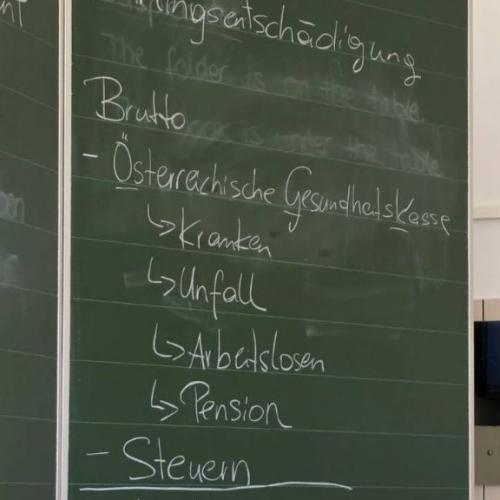 ngsentschädigung
The folder is on the table.
Brutto
is under the table
- Österreichische Gesundheitskasse
↳ Kranken
↳ Unfall
↳ Arbeitslosen
↳ Pension
- Steuern